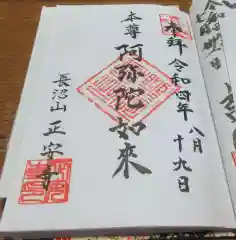 奉拝
令和四年八月
十九日
本尊
阿弥陀如來
長沼山
正安寺